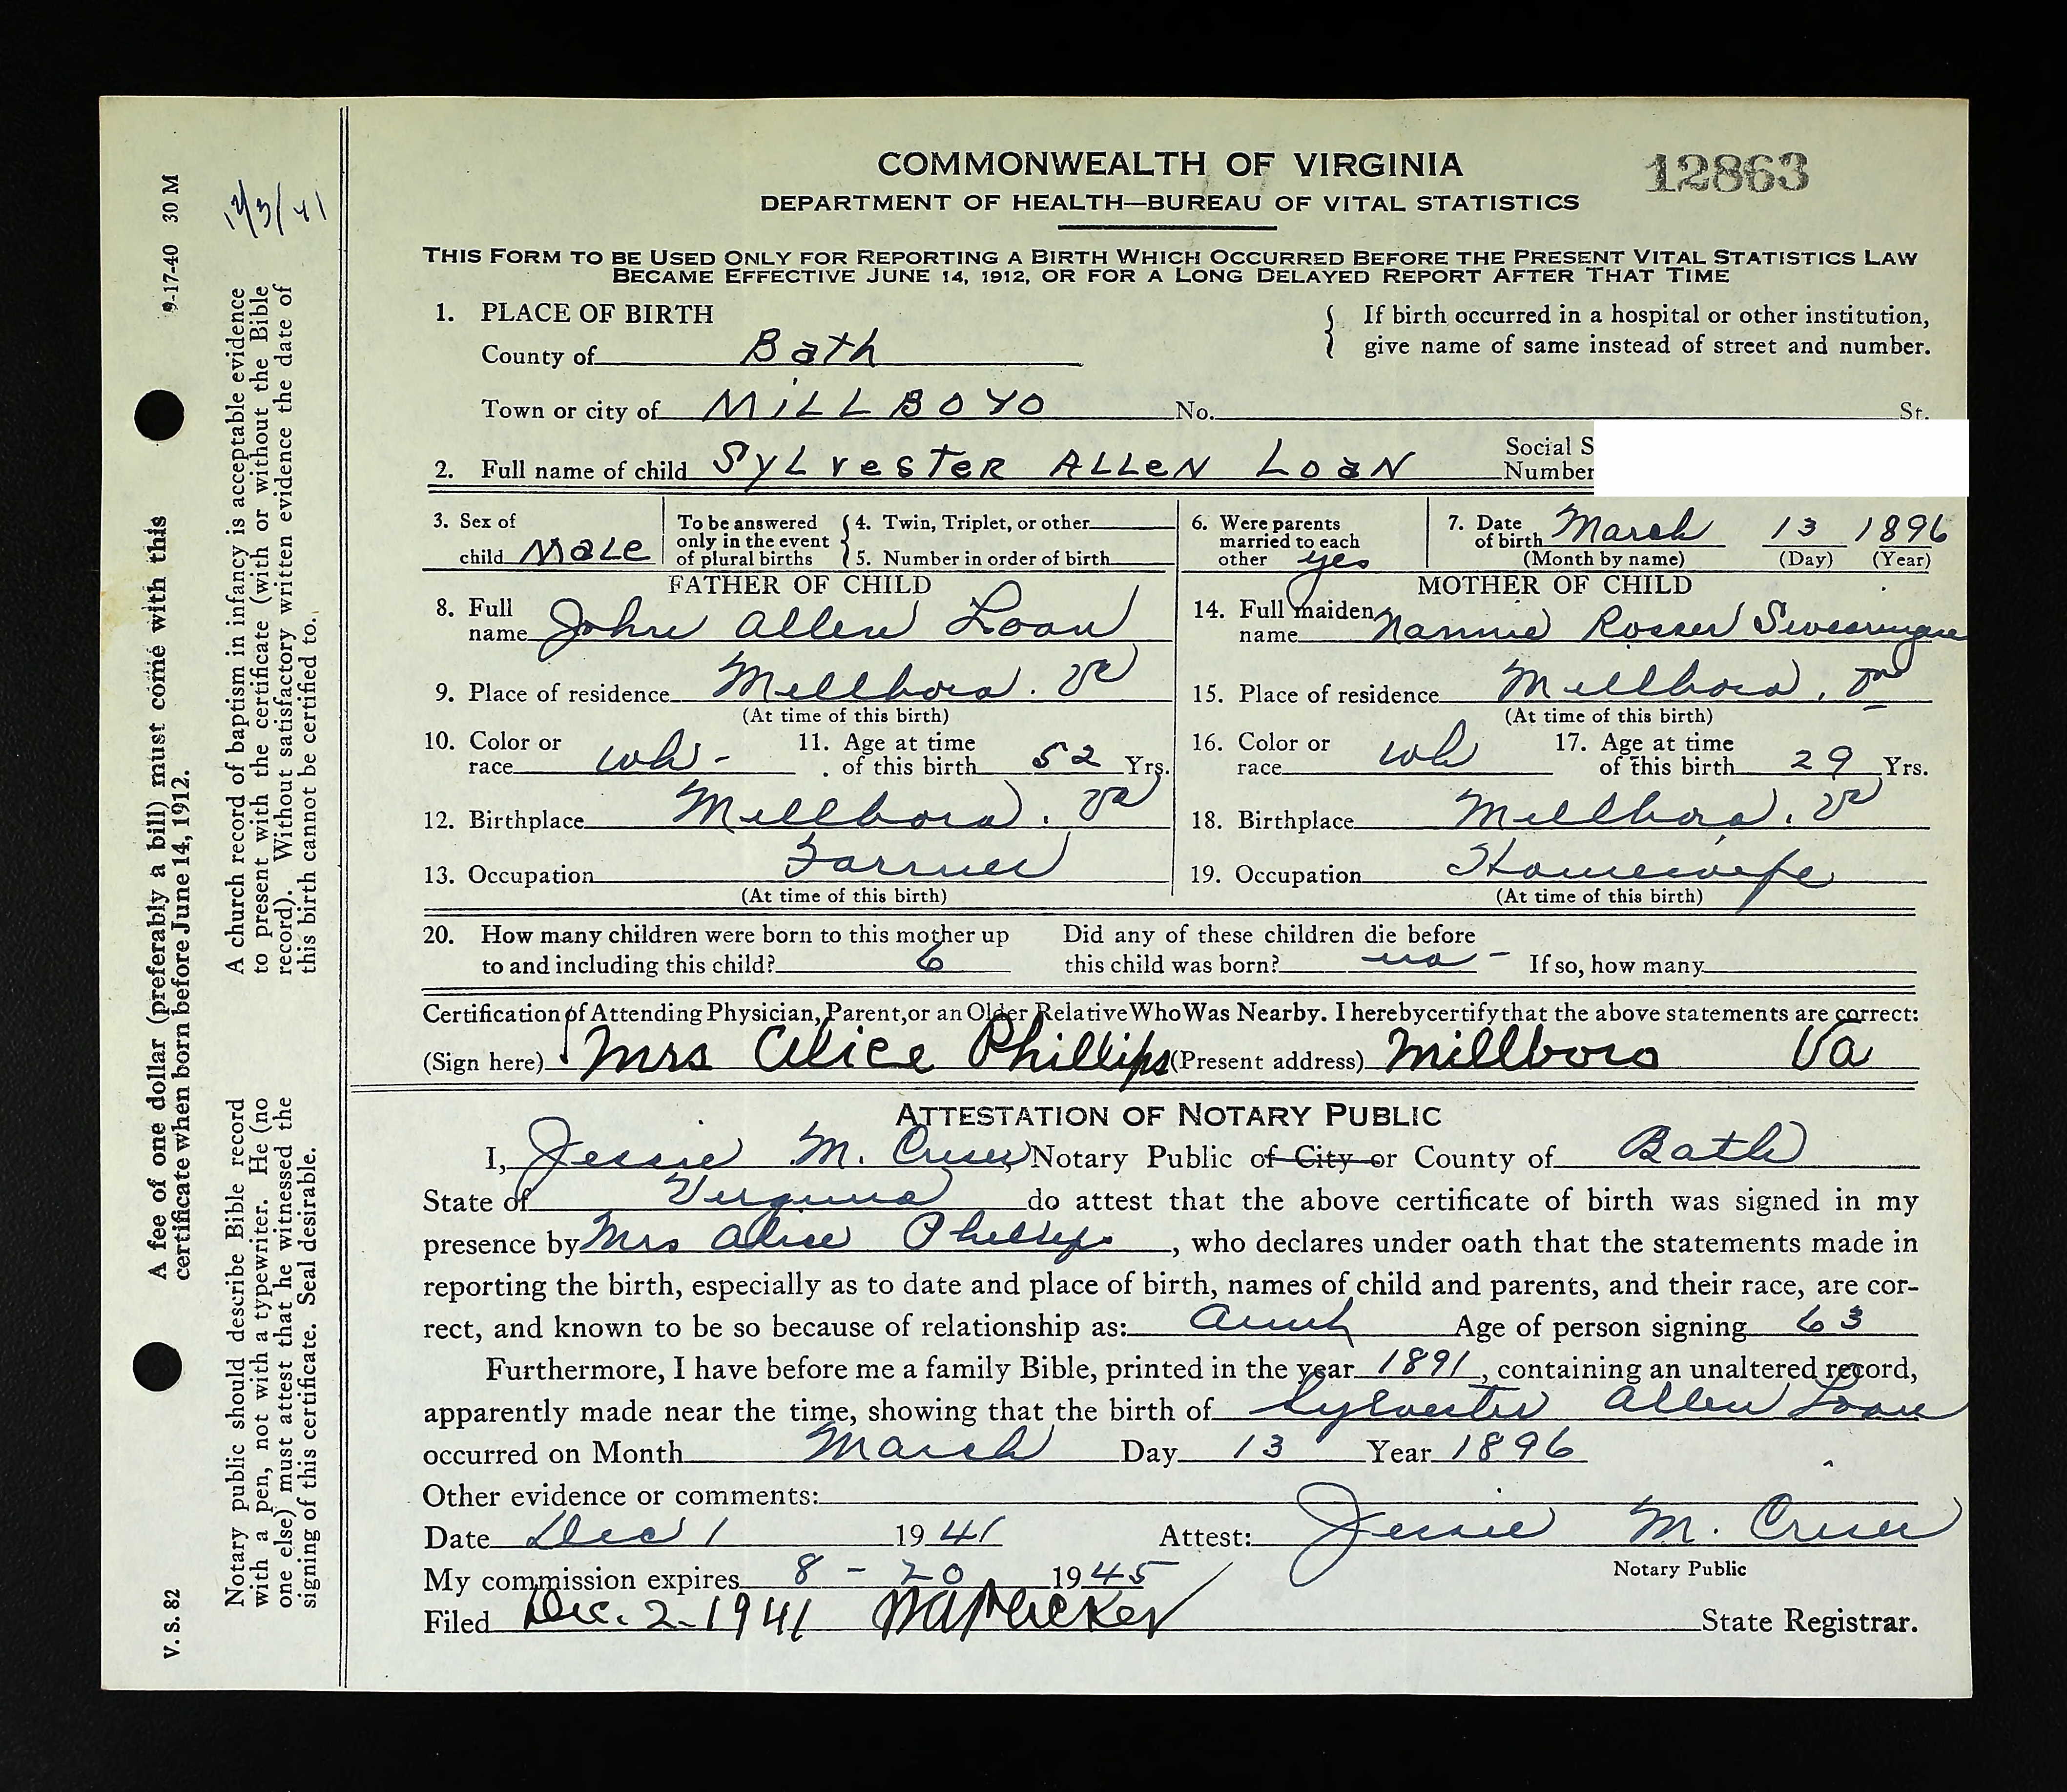 COMMONWEALTH OF VIRGINIA
12863
DEPARTMENT OF HEALTH—BUREAU OF VITAL STATISTICS
THIS FORM TO BE USED ONLY FOR REPORTING A BIRTH WHICH OCCURRED BEFORE THE PRESENT VITAL STATISTICS LAW
BECAME EFFECTIVE JUNE 14, 1912, OR FOR A LONG DELAYED REPORT AFTER THAT TIME
1. PLACE OF BIRTH
County of Bath
If birth occurred in a hospital or other institution,
give name of same instead of street and number.
Town or city of MiLLBOYO No. St.
2. Full name of child SyLvesTeR ALLeN LoaN
Social S
Number
3. Sex of
child MaLe
To be answered
only in the event
of plural births
4. Twin, Triplet, or other
5. Number in order of birth
6. Were parents
married to each
other yes
7. Date
of birth March 13 1896
(Month by name) (Day) (Year)
FATHER OF CHILD
8. Full
name John Allen Loan
9. Place of residence Millboro. Va
(At time of this birth)
10. Color or
race wh -
11. Age at time
of this birth 52 Yrs.
12. Birthplace Millboro. Va
13. Occupation Farmer
(At time of this birth)
MOTHER OF CHILD
14. Full maiden
name Nannie Rosser Swearingen
15. Place of residence Millboro, Va
(At time of this birth)
16. Color or
race wh
17. Age at time
of this birth 29 Yrs.
18. Birthplace Millboro, Va
19. Occupation Housewife
(At time of this birth)
20. How many children were born to this mother up
to and including this child? 6
Did any of these children die before
this child was born? no - If so, how many
Certification of Attending Physician, Parent, or an Older Relative Who Was Nearby. I hereby certify that the above statements are correct:
(Sign here) Mrs Alice Phillips (Present address) Millboro Va
ATTESTATION OF NOTARY PUBLIC
I, Jessie M. Criser Notary Public of City or County of Bath
State of Virginia do attest that the above certificate of birth was signed in my
presence by Mrs Alice Phillips, who declares under oath that the statements made in
reporting the birth, especially as to date and place of birth, names of child and parents, and their race, are cor-
rect, and known to be so because of relationship as: Aunt Age of person signing 63
Furthermore, I have before me a family Bible, printed in the year 1891, containing an unaltered record,
apparently made near the time, showing that the birth of Sylvester Allen Loan
occurred on Month March Day 13 Year 1896
Other evidence or comments:
Date Dec 1 1941 Attest: Jessie M. Criser
Notary Public
My commission expires 8 - 20 1945
Filed Dec. 2-1941 State Registrar.
9-17-40 30 M
A fee of one dollar (preferably a bill) must come with this
certificate when born before June 14, 1912.
V. S. 82
12/3/41
A church record of baptism in infancy is acceptable evidence
to present with the certificate (with or without the Bible
record). Without satisfactory written evidence the date of
this birth cannot be certified to.
Notary public should describe Bible record
with a pen, not with a typewriter. He (no
one else) must attest that he witnessed the
signing of this certificate. Seal desirable.